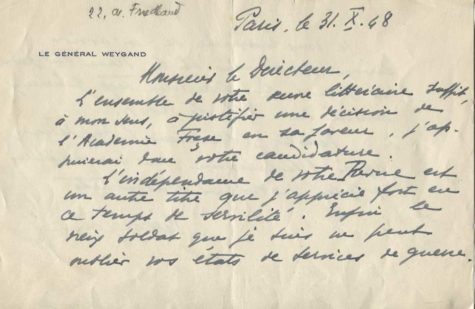 22, av. Friedland
Paris, le 31. X. 48
LE GÉNÉRAL WEYGAND
Monsieur le Directeur,
L'ensemble de votre œuvre littéraire suffit
à mon sens, à justifier une décision de
l'Académie Frçse en sa faveur, j'ap-
puierai donc votre candidature.
L'indépendance de votre Revue est
un autre titre que j'apprécie fort en
ce temps de servilité. Enfin le
vieux soldat que je suis ne peut
oublier vos états de services de guerre.